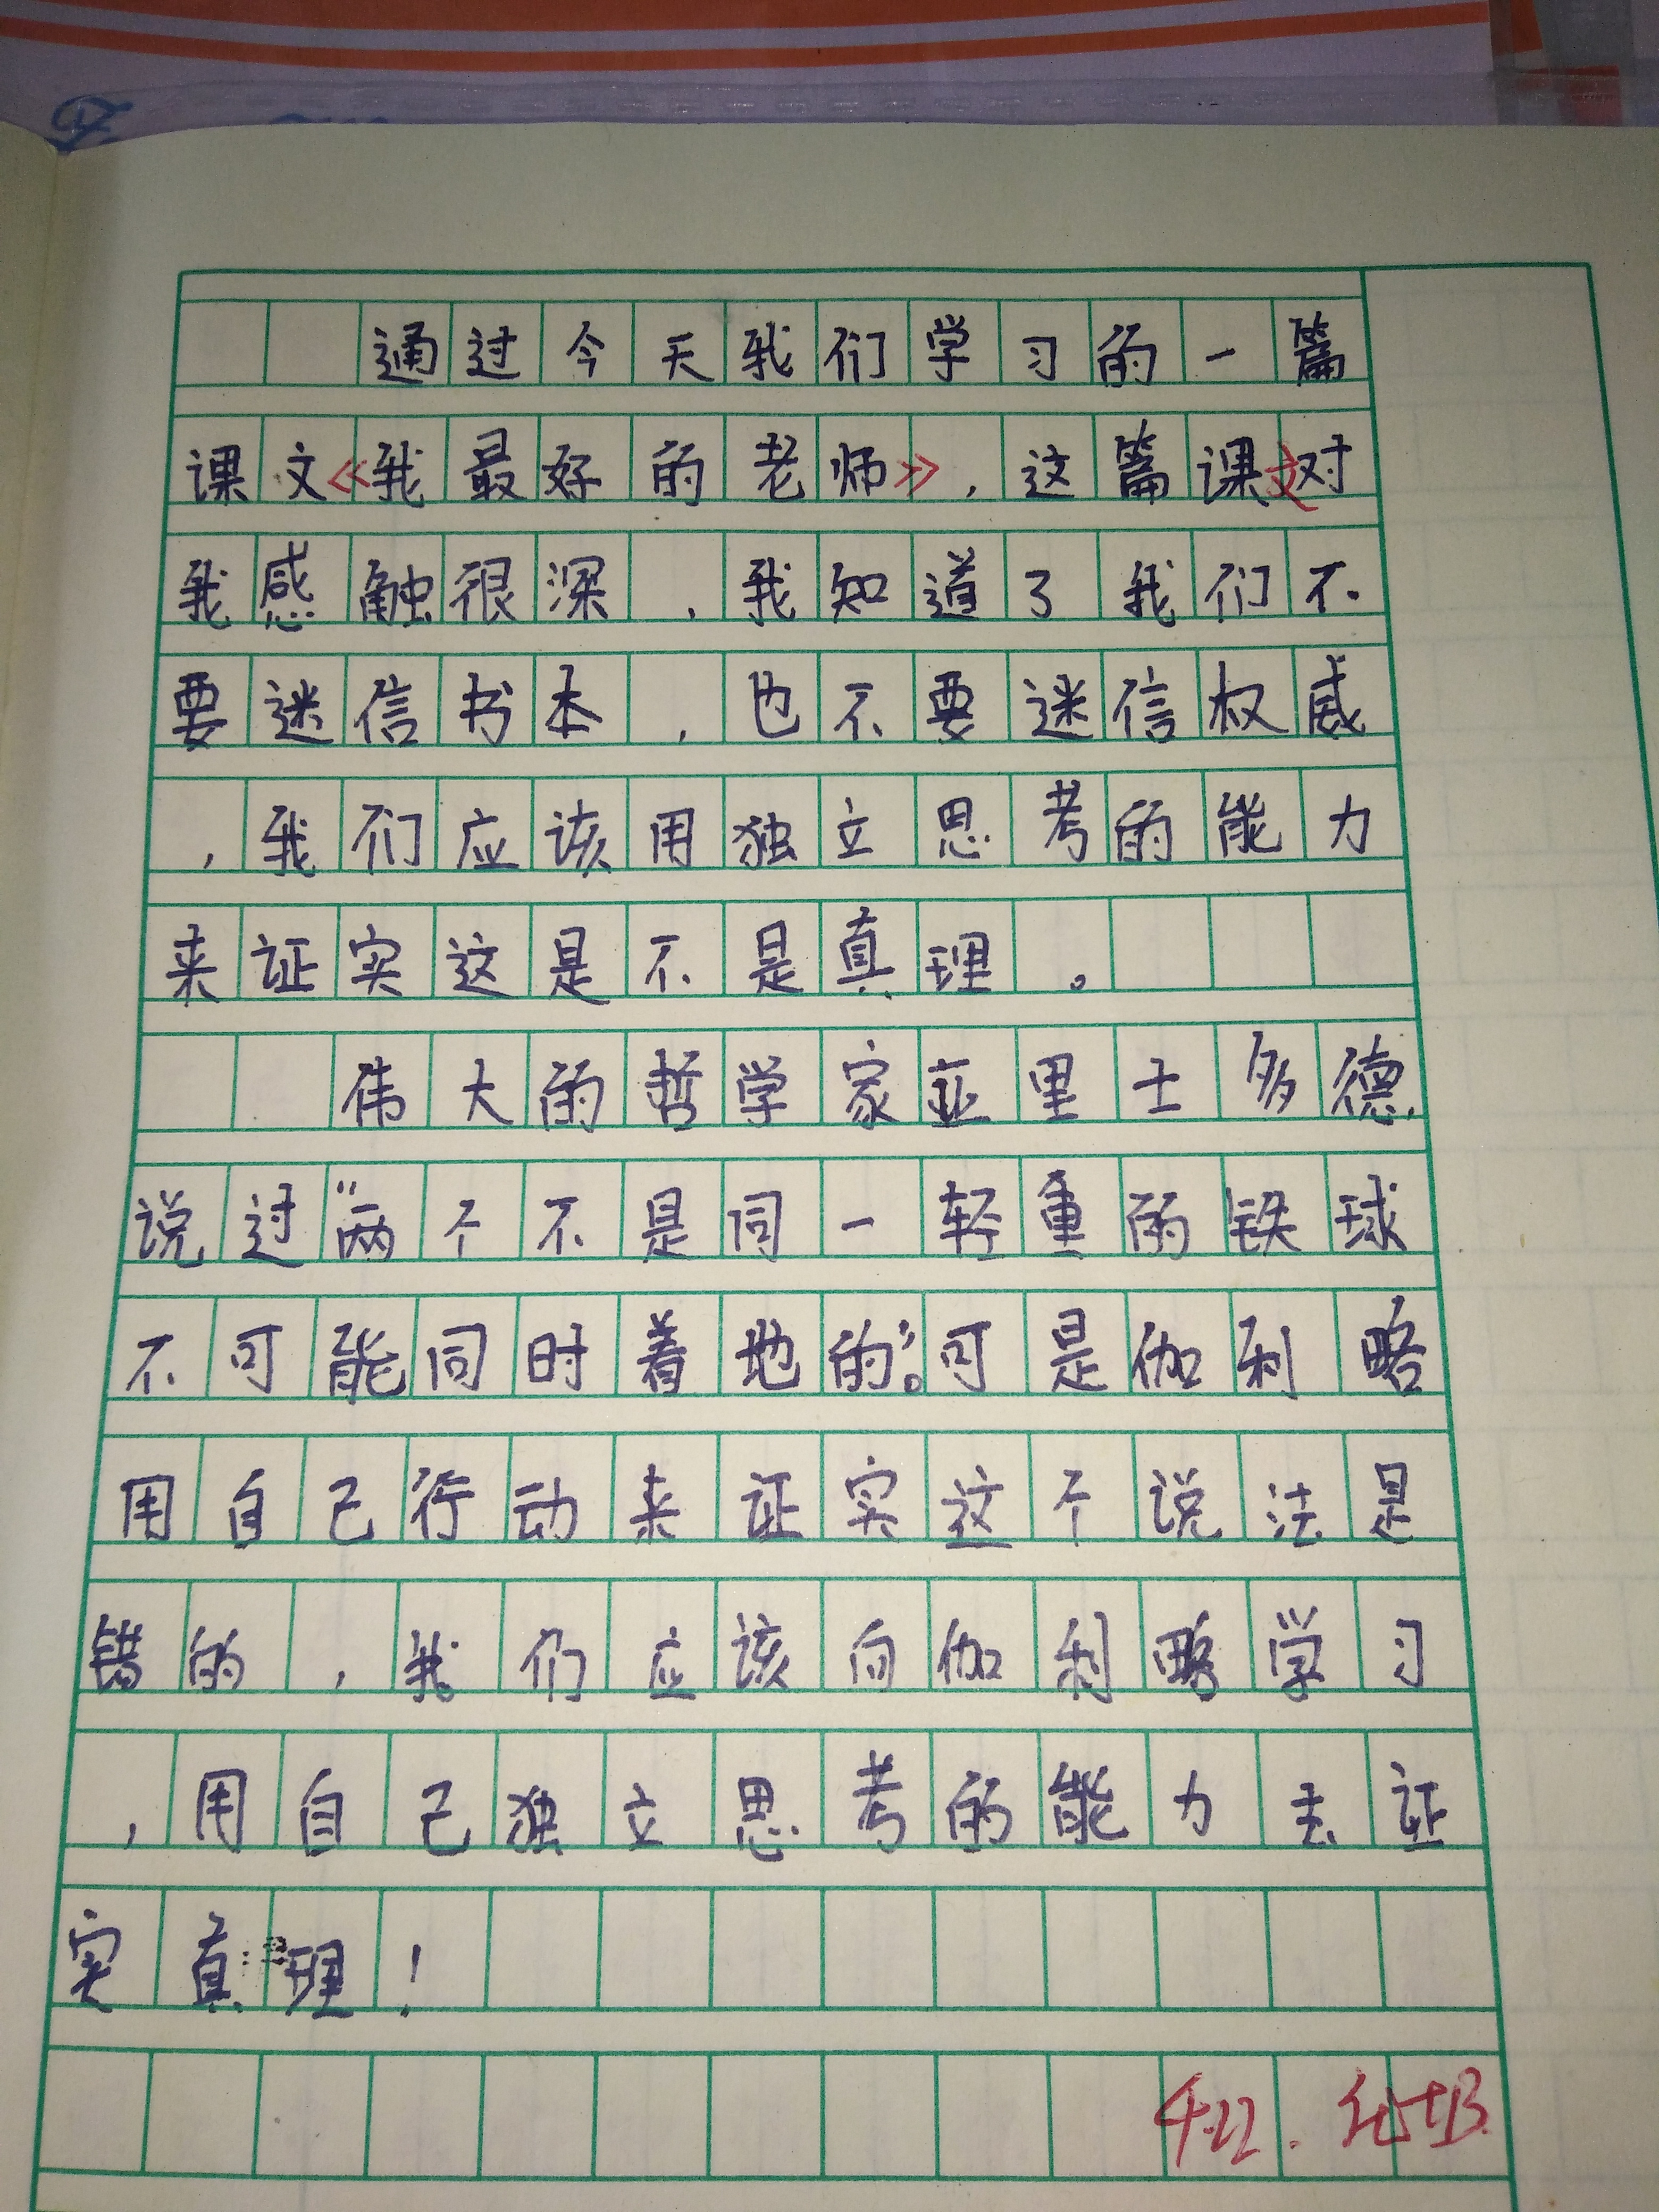 通过今天我们学习的一篇
课文《我最好的老师》，这篇课文对
我感触很深，我知道了我们不
要迷信书本，也不要迷信权威
，我们应该用独立思考的能力
来证实这是不是真理。
伟大的哲学家亚里士多德
说过“两个不是同一轻重的铁球
不可能同时着地的”。可是伽利略
用自己行动来证实这个说法是
错的，我们应该向伽利略学习
，用自己独立思考的能力去证
实真理！
4.22.